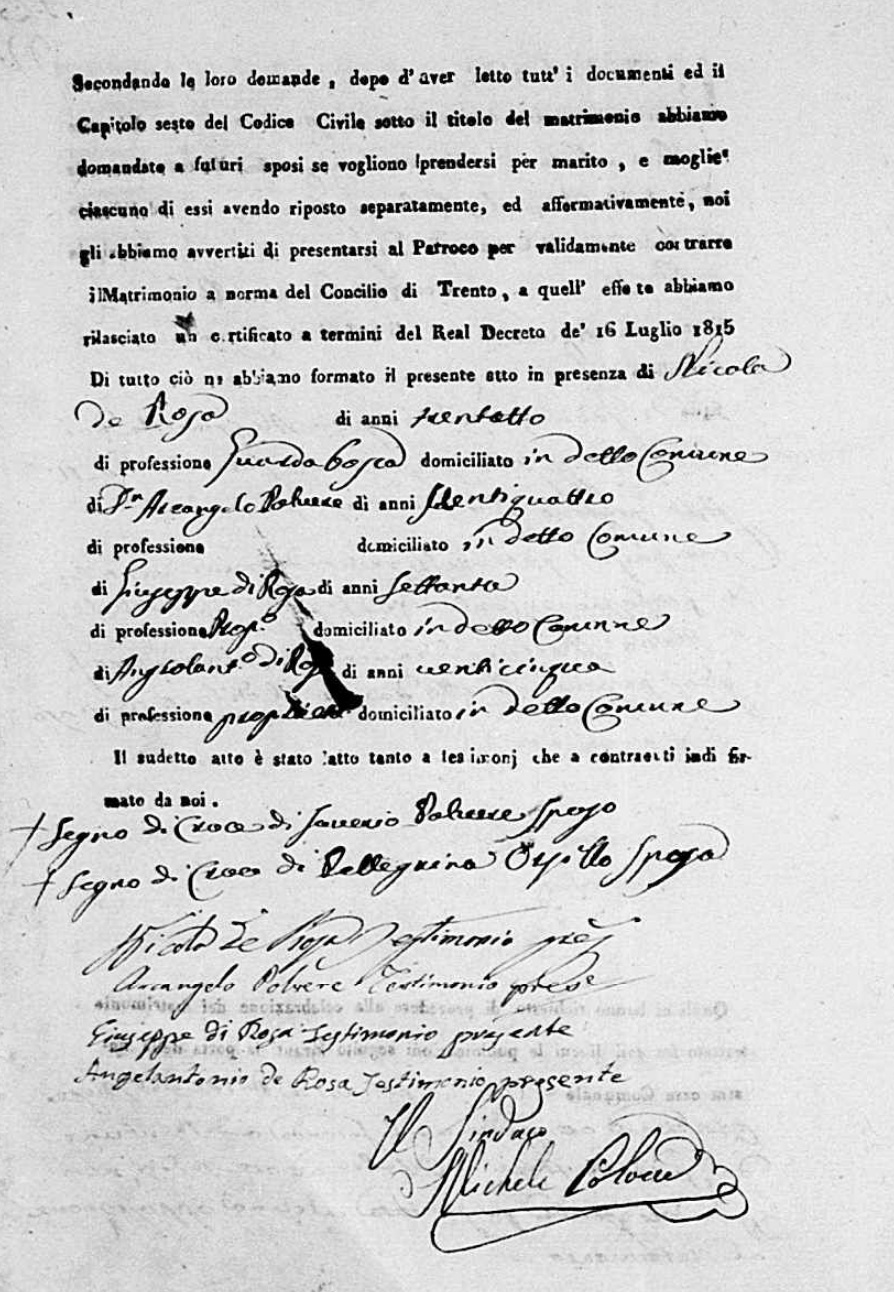 Secondando le loro domande, dopo d'aver letto tutt' i documenti ed il
Capitolo sesto del Codice Civile sotto il titolo del matrimonio abbiamo
domandato a futuri sposi se vogliono prendersi per marito, e moglie
ciascuno di essi avendo riposto separatamente, ed affermativamente, noi
gli abbiamo avvertiti di presentarsi al Parroco per validamente contrarre
il Matrimonio a norma del Concilio di Trento, a quell' effeto abbiamo
rilasciato un certificato a termini del Real Decreto de' 16 Luglio 1815
Di tutto ciò ne abbiamo formato il presente atto in presenza di Nicola
de Rosa di anni trentotto
di professione Guardabosco domiciliato in detto Comune
di D.n Arcangelo Polvere di anni
di professione domiciliato in detto Comune
di Giuseppe di Rosa di anni settanta
di professione Prop.o domiciliato in detto Comune
di Angiolant.o di Rosa di anni venticinque
di professione domiciliato in detto Comune
Il sudetto atto è stato latto tanto a testimonj che a contraenti indi fir-
mato da noi.
+ Segno di Croce di Saverio Polvere sposo
+ Segno di Croce di Pellegrina sposa
Nicola de Rosa Testimonio
Arcangelo Polvere Testimonio
Giuseppe di Rosa Testimonio presente
Angelantonio de Rosa Testimonio presente
Il Sindaco
Michele Polvere